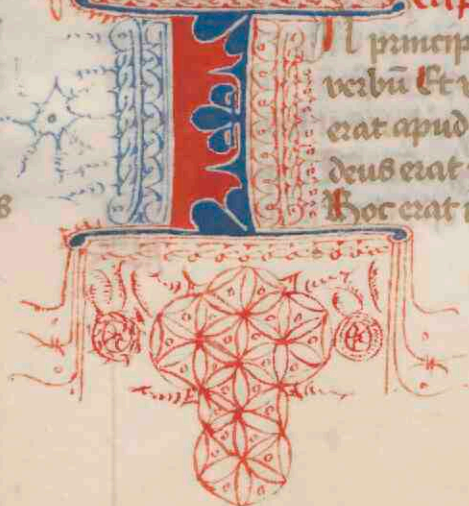 I
N princip
verbū Et v
erat apud
deus erat
Hoc erat
s